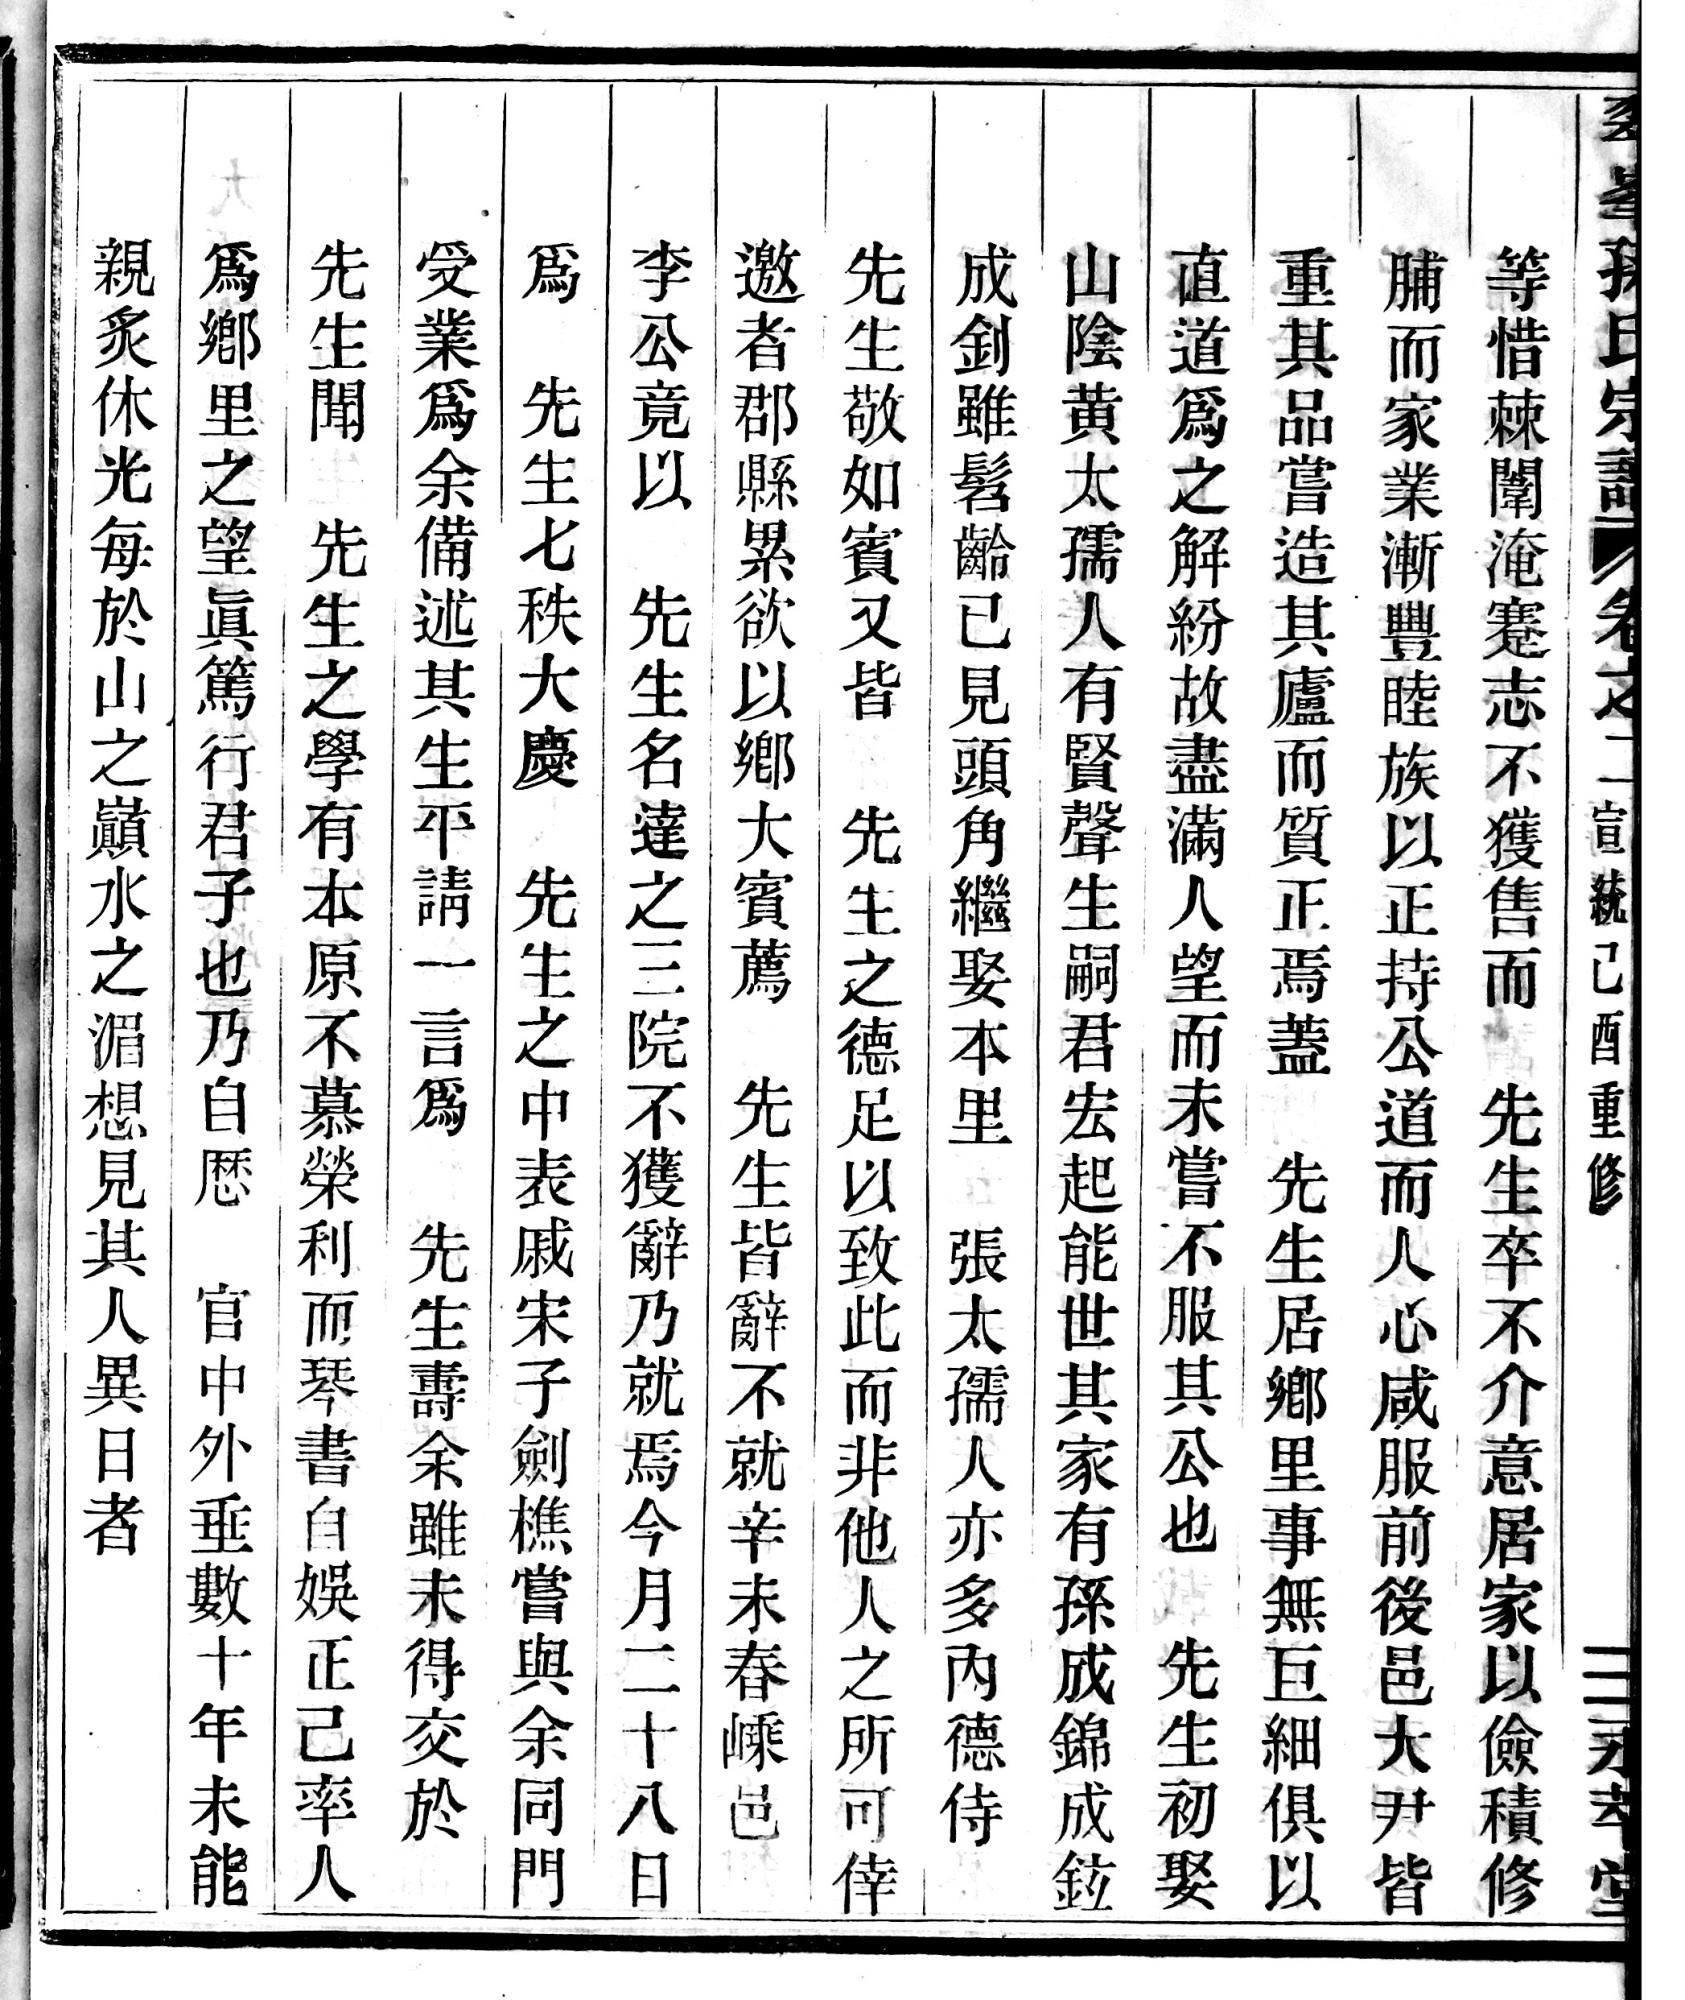 峯孫氏宗譜 卷之二 宣統己酉重修
等惜棘闈淹蹇志不獲售而　先生卒不介意居家以儉積修
脯而家業漸豐睦族以正持公道而人心咸服前後邑大尹皆
重其品嘗造其廬而質正焉蓋　先生居鄉里事無巨細俱以
直道爲之解紛故盡滿人望而未嘗不服其公也　先生初娶
山陰黄太孺人有賢聲生嗣君宏起能世其家有孫成錦成鉉
成釗雖髫齡已見頭角繼娶本里　張太孺人亦多內德侍
先生敬如賓又皆　先生之德足以致此而非他人之所可倖
邀者郡縣累欲以鄉大賓薦　先生皆辭不就辛未春嵊邑
李公竟以　先生名達之三院不獲辭乃就焉今月二十八日
爲　先生七秩大慶　先生之中表戚宋子劍樵嘗與余同門
受業爲余備述其生平請一言爲　先生壽余雖未得交於
先生聞　先生之學有本原不慕榮利而琴書自娛正己率人
爲鄉里之望眞篤行君子也乃自歷　官中外垂數十年未能
親炙休光每於山之巔水之湄想見其人異日者